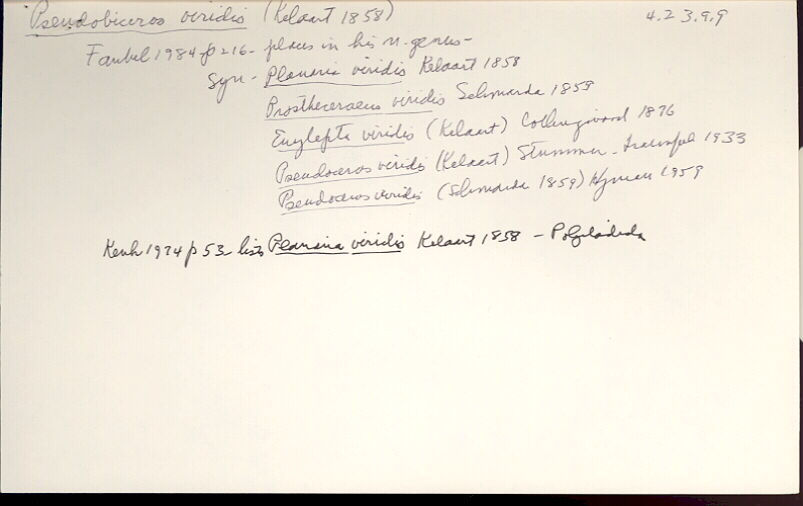 Pseudobiceros viridis (Kelaart 1858) 4.23.9.9
Faubel 1984 p 216 - places in his n. genus -
Syn - Planaria viridis Kelaart 1858
Prostheceraeus viridis Schmarda 1859
Eurylepta viridis (Kelaart) Collingwood 1876
Pseudoceros viridis (Kelaart) Stummer-Traunfels 1933
Pseudoceros viridis (Schmarda 1859) Hyman 1959
Kenk 1974 p 53 lists Planaria viridis Kelaart 1858 - Polycladida